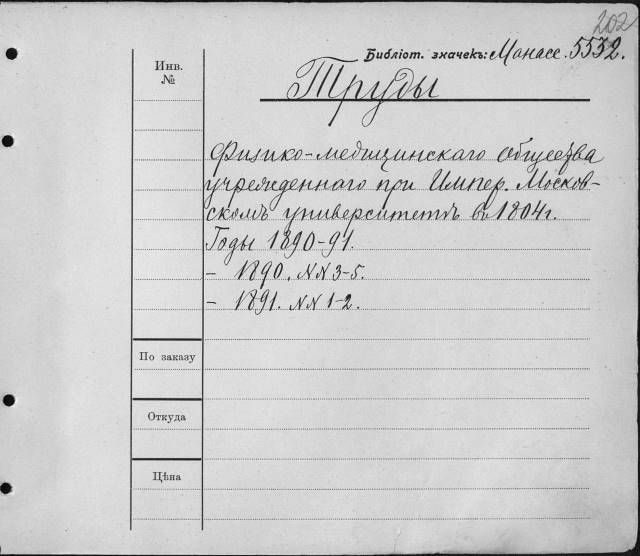 202
Библіот. значекъ: Манасс. 5532.
Инв.
№
Труды
Физико-медицинскаго общества
учрежденнаго при Импер. Москов-
скомъ университетѣ въ 1804 г.
Годы 1890-91.
- 1890. NN 3-5.
- 1891. NN 1-2.
По заказу
Откуда
Цѣна